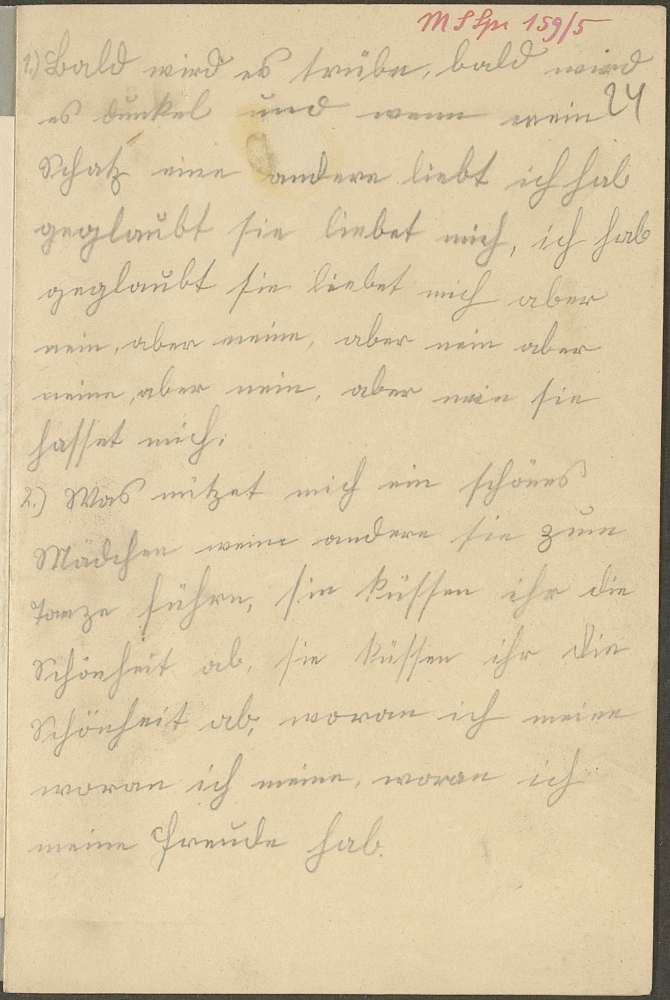 MS Spr 159/5
24
1.) Bald wird es trübe, bald wird
es dunkel und wenn mein
Schatz eine andere liebt ich hab
geglaubt sie liebet mich, ich hab
geglaubt sie liebet mich aber
nein, aber meine, aber nein aber
neine, aber nein, aber nein sie
hasset mich.
2.) Was nützet mich ein schönes
Mädchen wenn andere sie zum
Tanze führn, sie küssen ihr die
Schönheit ab, sie küssen ihr die
Schönheit ab, woran ich meine
woran ich meine, woran ich
meine Freude hab.